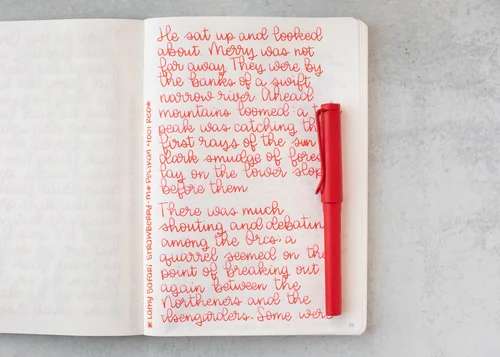 He sat up and looked
about. Merry was not
far away. They were by
the banks of a swift,
narrow river. Ahead
mountains loomed: a t
peak was catching th
first rays of the sun
dark smudge of fores
lay on the lower slop
before them.
There was much
shouting and debatin
among the Orcs; a
quarrel seemed on th
point of breaking out
again between the
Northeners and the
Isengarders. Some wer
* Lamy Safari Strawberry • M * Pelikan 4001 Red *